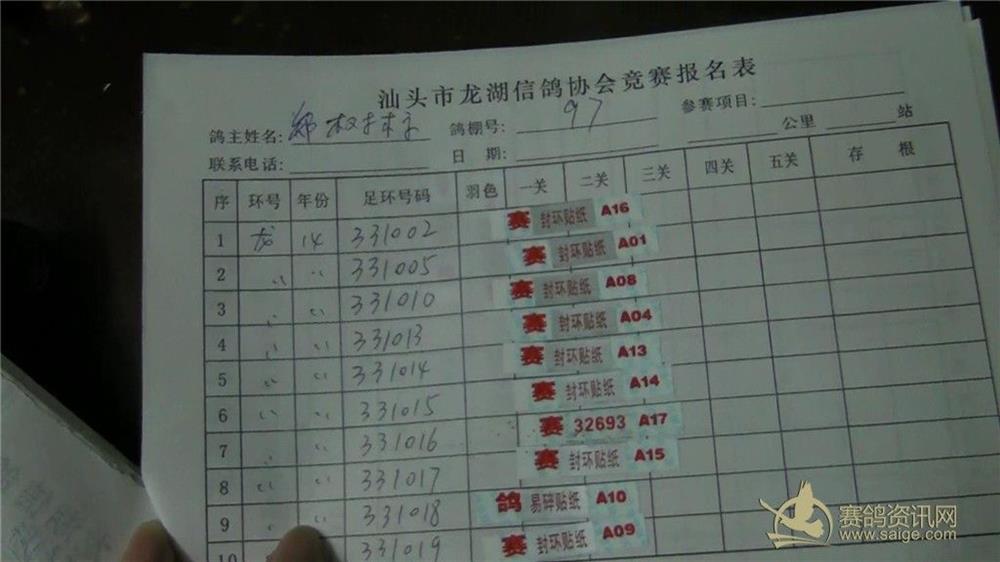 汕头市龙湖信鸽协会竞赛报名表
鸽主姓名: 鸽棚号: 97 参赛项目:
联系电话: 日 期: 公里 站
序 环号 年份 足环号码 羽色 一关 二关 三关 四关 五关 存 根
1 龙 14 331002 赛 封环贴纸 A16
2 〃 〃 331005 赛 封环贴纸 A01
3 〃 〃 331010 赛 封环贴纸 A08
4 〃 〃 331013 赛 封环贴纸 A04
5 〃 〃 331014 赛 封环贴纸 A13
6 〃 〃 331015 赛 封环贴纸 A14
7 〃 〃 331016 赛 32693 A17
8 〃 〃 331017 赛 封环贴纸 A15
9 〃 331018 鸽 易碎贴纸 A10
10 331019 赛 封环贴纸 A09
赛鸽资讯网
www.saige.com